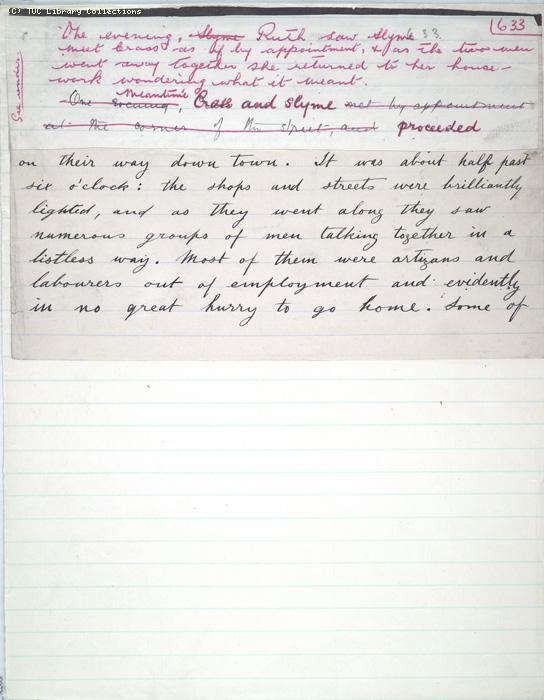 (C) TUC Library Collections
633
633.
One evening, Slyme Ruth saw Slyme
meet Crass as if by appointment, & as the two men
went away together she returned to her house-
work wondering what it meant.
See under.
Meantime
One evening, Crass and Slyme met by appointment
at the corner of the street, and proceeded
on their way down town. It was about half past
six o'clock: the shops and streets were brilliantly
lighted, and as they went along they saw
numerous groups of men talking together in a
listless way. Most of them were artizans and
labourers out of employment and evidently
in no great hurry to go home. Some of